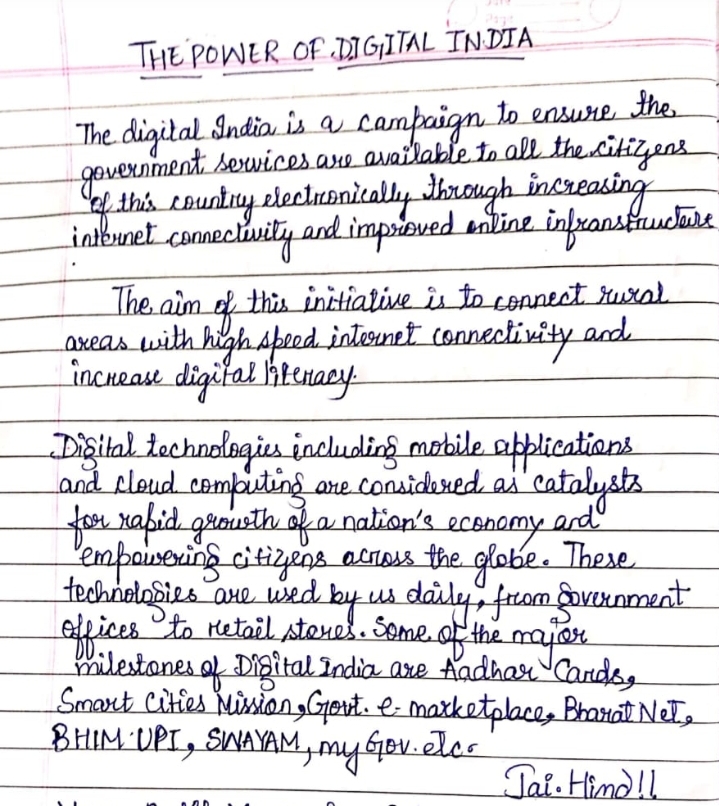 THE POWER OF DIGITAL INDIA
The digital India is a campaign to ensure the
government services are available to all the citizens
of this country electronically through increasing
internet connectivity and improved online infranstructure
The aim of this initiative is to connect rural
areas with high speed internet connectivity and
increase digital literacy.
Digital technologies including mobile applications
and cloud computing are considered as catalysts
for rapid growth of a nation's economy and
empowering citizens across the globe. These
technologies are used by us daily, from government
offices to retail stores. Some of the major
milestones of Digital India are Aadhar Cards,
Smart Cities Mission, Govt. e-marketplace, Bharat Net,
BHIM-UPI, SWAYAM, my Gov. etc.
Jai. Hind!!